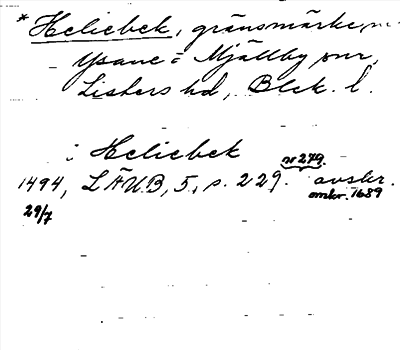 *Heliebek, gränsmärke,
Ysane = Mjällby snr,
Listers hd, Blek. l.
i Heliebek
nr 279.
1494, LÄUB, 5, s. 229. avskr.
29/7 omkr. 1689